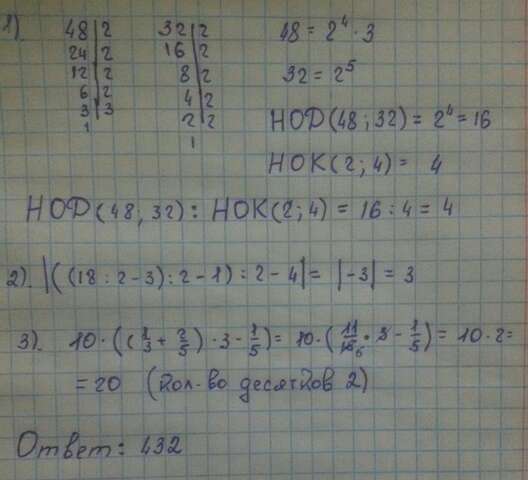 1)
48 | 2   32 | 2   48 = 2⁴ · 3
24 | 2   16 | 2
12 | 2   8 | 2   32 = 2⁵
6 | 2   4 | 2
3 | 3   2 | 2   НОД(48; 32) = 2⁴ = 16
1   1
НОК(2; 4) = 4
НОД(48; 32) : НОК(2; 4) = 16 : 4 = 4
2). |((18 : 2 - 3) : 2 - 1) : 2 - 4| = |-3| = 3
3). 10 · ((1/3 + 2/5) · 3 - 1/5) = 10 · (11/15 · 3 - 1/5) = 10 · 2 =
= 20 (кол-во десятков 2)
Ответ: 432